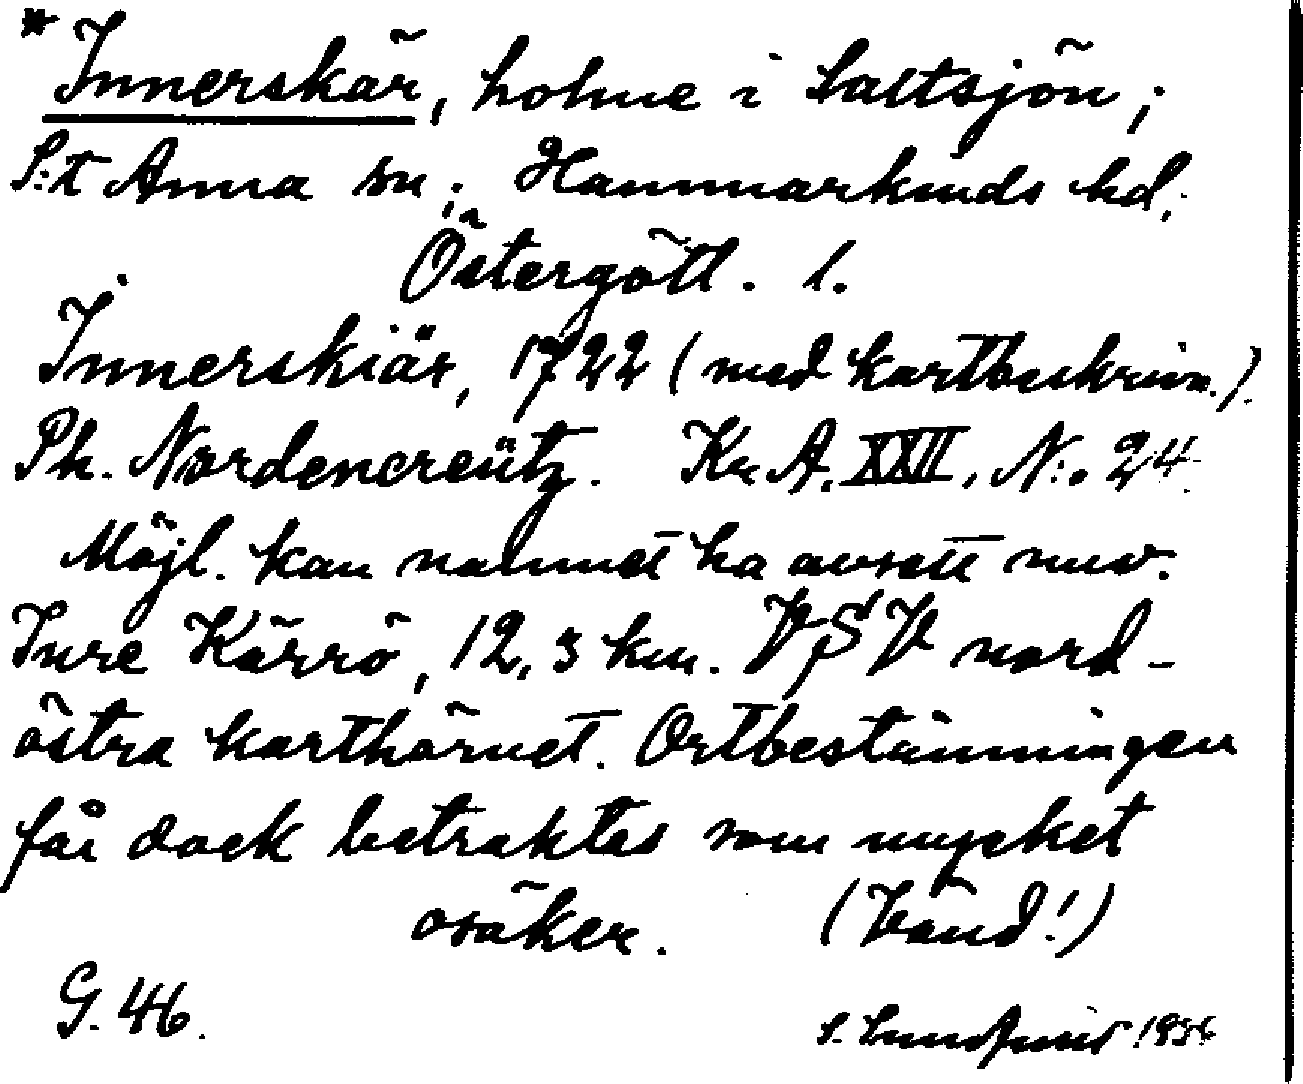 * Innerskär, holme i Saltsjön;
S:t Anna sn; Hammarkinds hd,
Östergötl. l.
Innerskiär, 1722 (med kartbeskrivn.).
Ph. Nordencreütz. Kr. A. XXII, N:o 24.
Möjl. kan namnet ha avsett nuv.
Inre Kärrö, 12,3 km. VSV nord-
östra karthörnet. Ortbestämningen
får dock betraktas som mycket
osäker. (Vänd!)
G. 46.
S. Lundqvist 1956